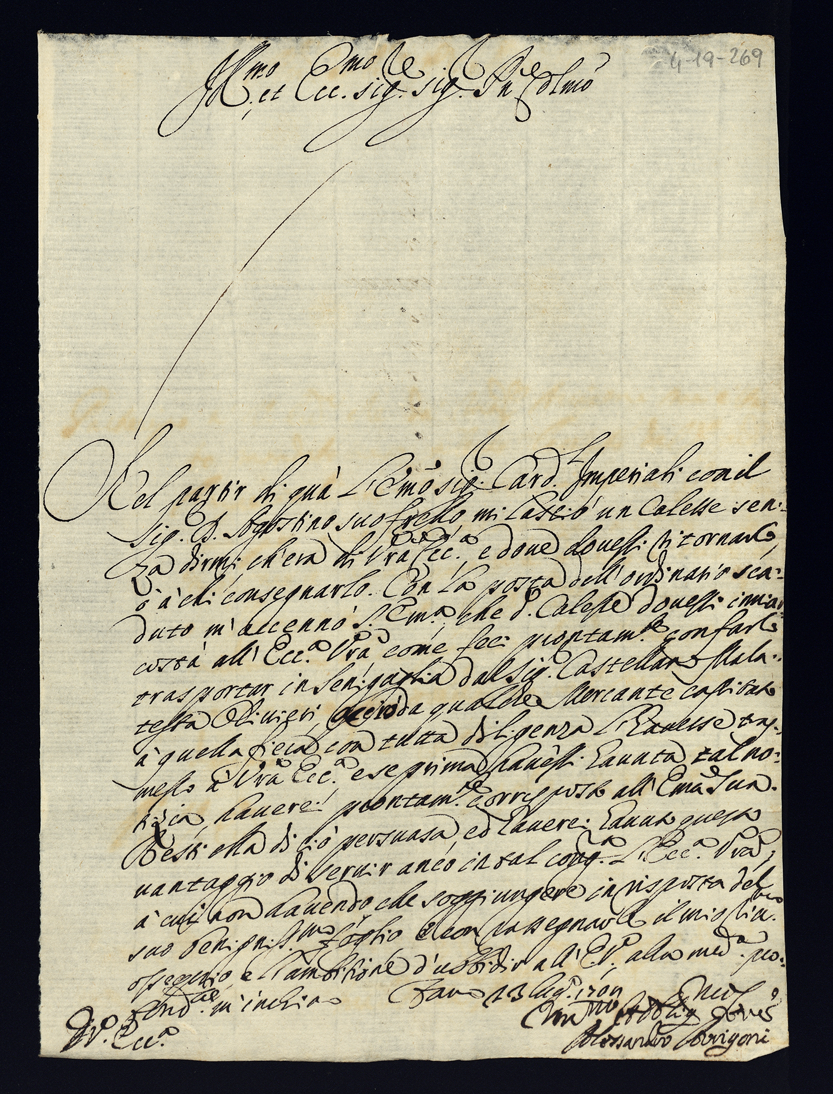 4-19-269
Ill.mo et Ecc.mo sig.re sig.re P.ne Colmo
Nel partir di quà L'Emo sig.r Card.l Imperiali con il
Sig. D. Agostino suo frello mi lasciò un Calesse sen:
za dirmi ch'era di Vra Ecc.a e dove dovessi ritornarlo
ò à chi consegnarlo. Con la posta dell'ordinario sca:
duto m'accennò S. Ema, che d.o Calesse dovessi inviar
costà all'Ecc.a Vra come feci prontam.te con farlo
trasportar in Senigaglia dal sig. Castellano Mala:
testa Olivieri da qualche Mercante capitato
à quella fiera con tutta diligenza l'havesse tras:
messo à Vra Ecc.a e se prima havessi havuta tal no:
titia haverei prontam.te corrisposto all'Ema Sua.
Resti ella di ciò persuasa ed haverei havuto questo
vantaggio di servir anco in tal L'Ecc.a Vra,
à cui non havendo che soggiungere in risposta del
suo benigniss.mo foglio con rassegnarle il mio
ossequio e l'ambitione d'ubbidir all'E.V. alla med.a pro:
fond.te m'inchino Fano 13 lug.o 1704
D. V. Ecc.a
Alessandro Arrigoni